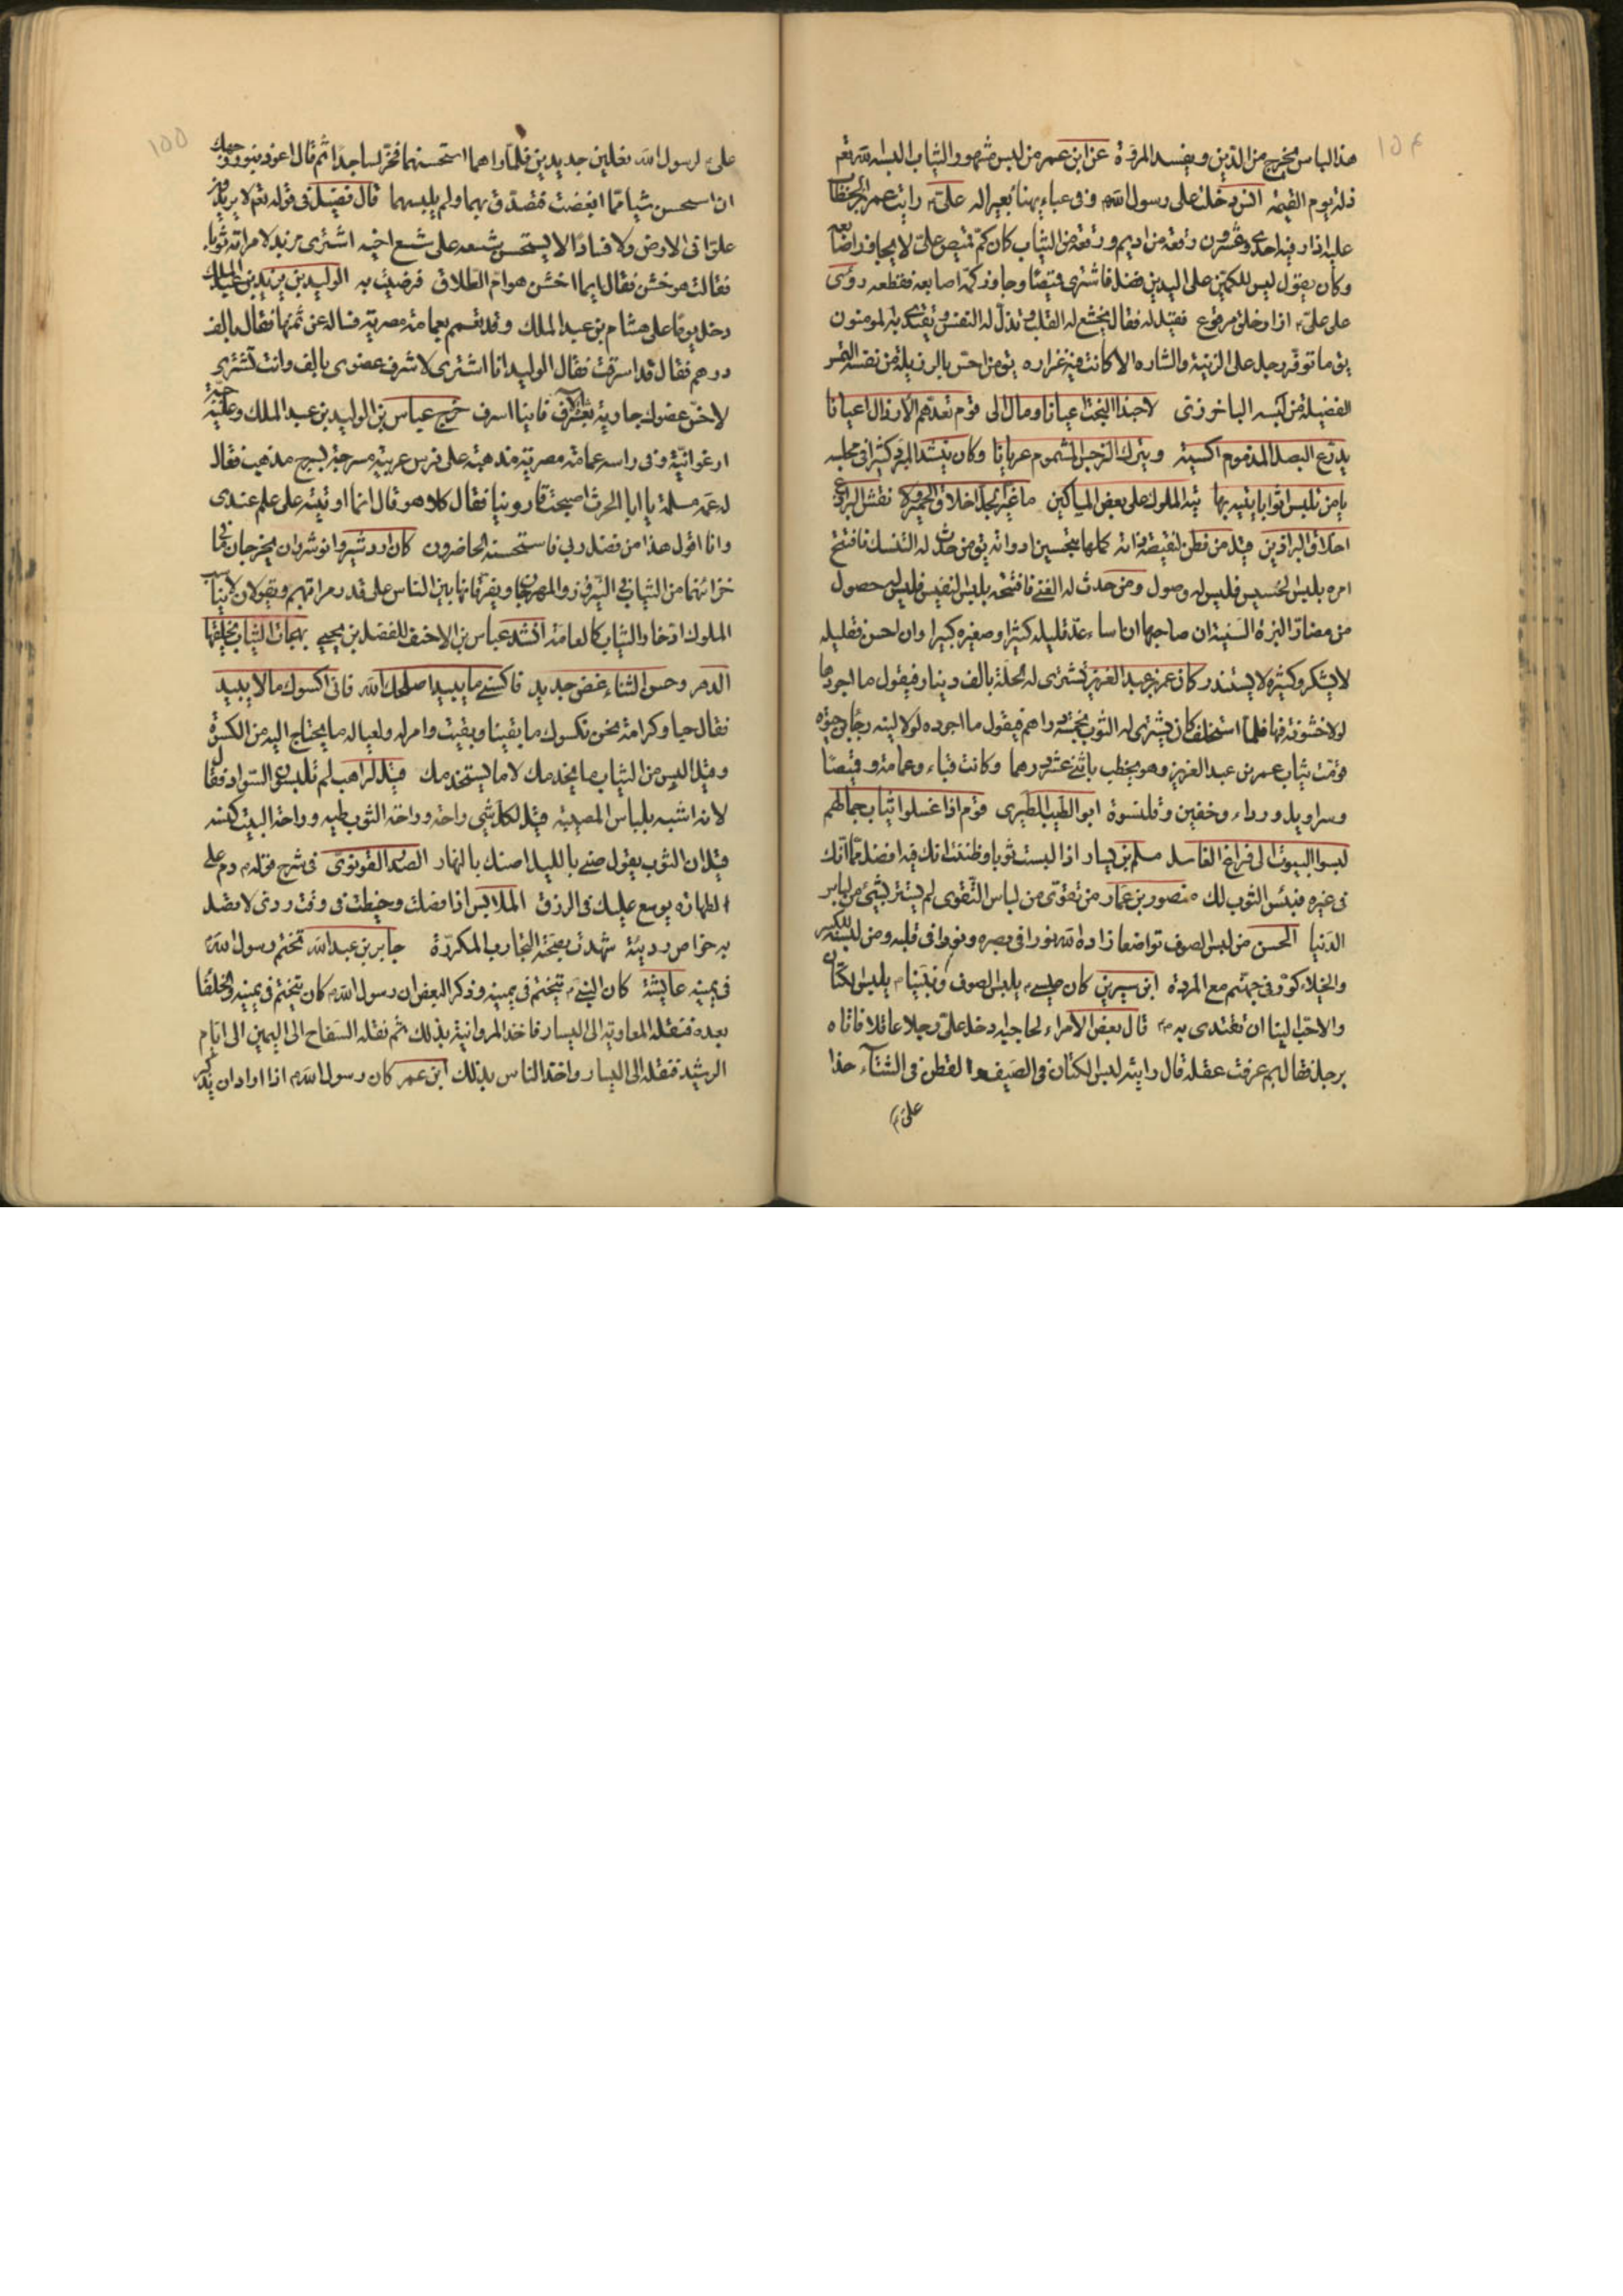 ١٥٤
هذا لباس يخرج من الدين ويفسد المروة عن ابن عمر من لبس مشهور الثياب البسه الله تعم
ذلة يوم القيمة انس دخلت على رسول الله وفى عباء يهنأ بعيرا له على رايت عمر بن الخطاب
عليه ازار فيه احدى وعشرون رقعة من اديم ورقعة من الثياب كان كم قميص على لا يجاوز اصابعه
وكان يقول ليس للكمين على اليدين فضل فاشترى قميصا وجاوز كمه اصابعه فقطعه رؤى
على على ازار خلق مرقوع فقيل له فقال يخشع له القلب وتذل له النفس ويقتدى به المومنون
يق ما توفر رجل على الزينة والشاره الا كانت فيه غراره يق من احس بالرذيلة من نفسه التمس
الفضيلة من لبسه الباخرزى لا حبذا البخت اعيانا ومال الى قوم تعدهم الارذال اعيانا
يدرع البصل المذموم اكسية ويترك النرجس المشموم عريانا وكان ينشد المبرد كثيرا فى مجلسه
يا من تلبس اثوابا يتيه بها تيه الملوك على بعض المساكين ما غير الجل اخلاق الحمير ولا نقش البراذع
اخلاق البراذين قيل من فطن لنقيصة ذاته كملها بتحسين ادواته يق من حدث له التنسك فافتتح
امره بلبس الخسيس فليس له وصول ومن حدث له الغنى فافتتحه بلبس النفيس فليس له حصول
من مضار البزة السنية ان صاحبها ان اساء عد قليله كثيرا وصغيره كبيرا وان احسن فقليله
لا يشكر وكثيره لا يستندر كان عمر بن عبد العزيز تشترى له الحلة بالف دينار فيقول ما اجودها
لولا خشونة فيها فلما استخلف كان يشترى له الثوب بخمسة دراهم فيقول ما اجوده لولا لينه رجاء بن حيوة
قومت ثياب عمر بن عبد العزيز وهو يخطب باثنى عشر درهما وكانت قباء وعمامة وقميصا
وسراويل ورداء وخفين وقلنسوة ابو الطيب الطبرى قوم اذا غسلوا ثياب جمالهم
لبسوا البيوت الى فراغ الغاسل مسلم بن يسار اذا لبست ثوبا وظننت انك فيه افضل مما انك
فى غيره فبئس الثوب لك منصور بن عمار من تعرى من لباس التقوى لم يستتر بشىء من لباس
الدنيا الحسن من لبس الصوف تواضعا زاده الله نورا فى بصره ونورا فى قلبه ومن لبسه للكبر
والخيلاء كور فى جهنم مع المردة ابن سيرين كان عيسى يلبس الصوف ونبينا يلبس الكتان
والاحب الينا ان نقتدى به قال بعض الامراء لحاجبه ادخل على رجلا عاقلا فاتاه
برجل فقال بم عرفت عقله قال رايته لبس الكتان فى الصيف والقطن فى الشتاء هذا
على
١٥٥
على لرسول الله نعلين جديدين فلما راهما استحسنهما فخر ساجدا ثم قال اعوذ بنور وجهك
ان استحسن شيا مما ابغضت فتصدق بهما ولم يلبسهما قال فضيل فى قوله تعم لا يريدون
علوا فى الارض ولا فسادا لا يستحسن شسعه على شسع اخيه اشترى مزيد لامراته ثوبا
فقالت هو خشن فقال ايما اخشن هو ام الطلاق فرضيت به الوليد بن يزيد بن عبد الملك
دخل يوما على هشام بن عبد الملك وقد تعمم بعمامة مصرية فساله عن ثمنها فقال بالف
درهم فقال قد اسرفت فقال الوليد انا اشترى لاشرف عضوى بالف وانت تشترى
لاخس عضوك جارية بعشرة الاف فاينا اسرف خرج عباس بن الوليد بن عبد الملك وعليه جبة
ارغوانية وفى راسه عمامة مصرية مذهبة على فرس عربية مسرجة بسرج مذهب فقال
له عمه مسلمة يا ابا الحرث اصبحت قارونيا فقال كلا هو قال انما اوتيته على علم عندى
وانا اقول هذا من فضل ربى فاستحسنه الحاضرون كان اردشير وانوشروان يخرجان ما فى
خزائنهما من الثياب فى النيروز والمهرجان ويفرقانها بين الناس على قدر مراتهم ويقولان لا يناسب
الملوك ادخار الثياب كالعامة انشد عباس بن الاحنف للفضل بن يحيى بهجات الثياب يخلقها
الدهر وحسن الثناء غض جديد فاكسنى ما يبيد اصلحك الله فانى اكسوك ما لا يبيد
فقال حبا وكرامة نحن نكسوك ما بقينا وبقيت وامر له ولعياله ما يحتاج اليه من الكسوة
وقيل البس من الثياب ما يخدمك لا ما يستخدمك قيل لراهب لم تلبسون السواد فقال
لانه اشبه بلباس المصيبة قيل لكل شى راحة وراحة الثوب طيه وراحة البيت كنسه
قيل ان الثوب يقول صنى بالليل اصنك بالنهار الصدر القونوى فى شرح قوله دم على
الطهارة يوسع عليك فى الرزق الملابس اذا فصلت وخيطت فى وقت ردى لا تصل
به خواص رديئة شهدت بصحة التجارب المكررة جابر بن عبد الله تختم رسول الله
فى يمينه عايشة كان النبى يتختم فى يمينه وذكر البعض ان رسول الله كان يتختم فى يمينه والخلفا
بعده فنقله المعاوية الى اليسار فاخذ المروانية بذلك ثم نقله السفاح الى اليمين الى ايام
الرشيد فنقله الى اليسار واخذ الناس بذلك ابن عمر كان رسول الله اذا اراد ان يذكر